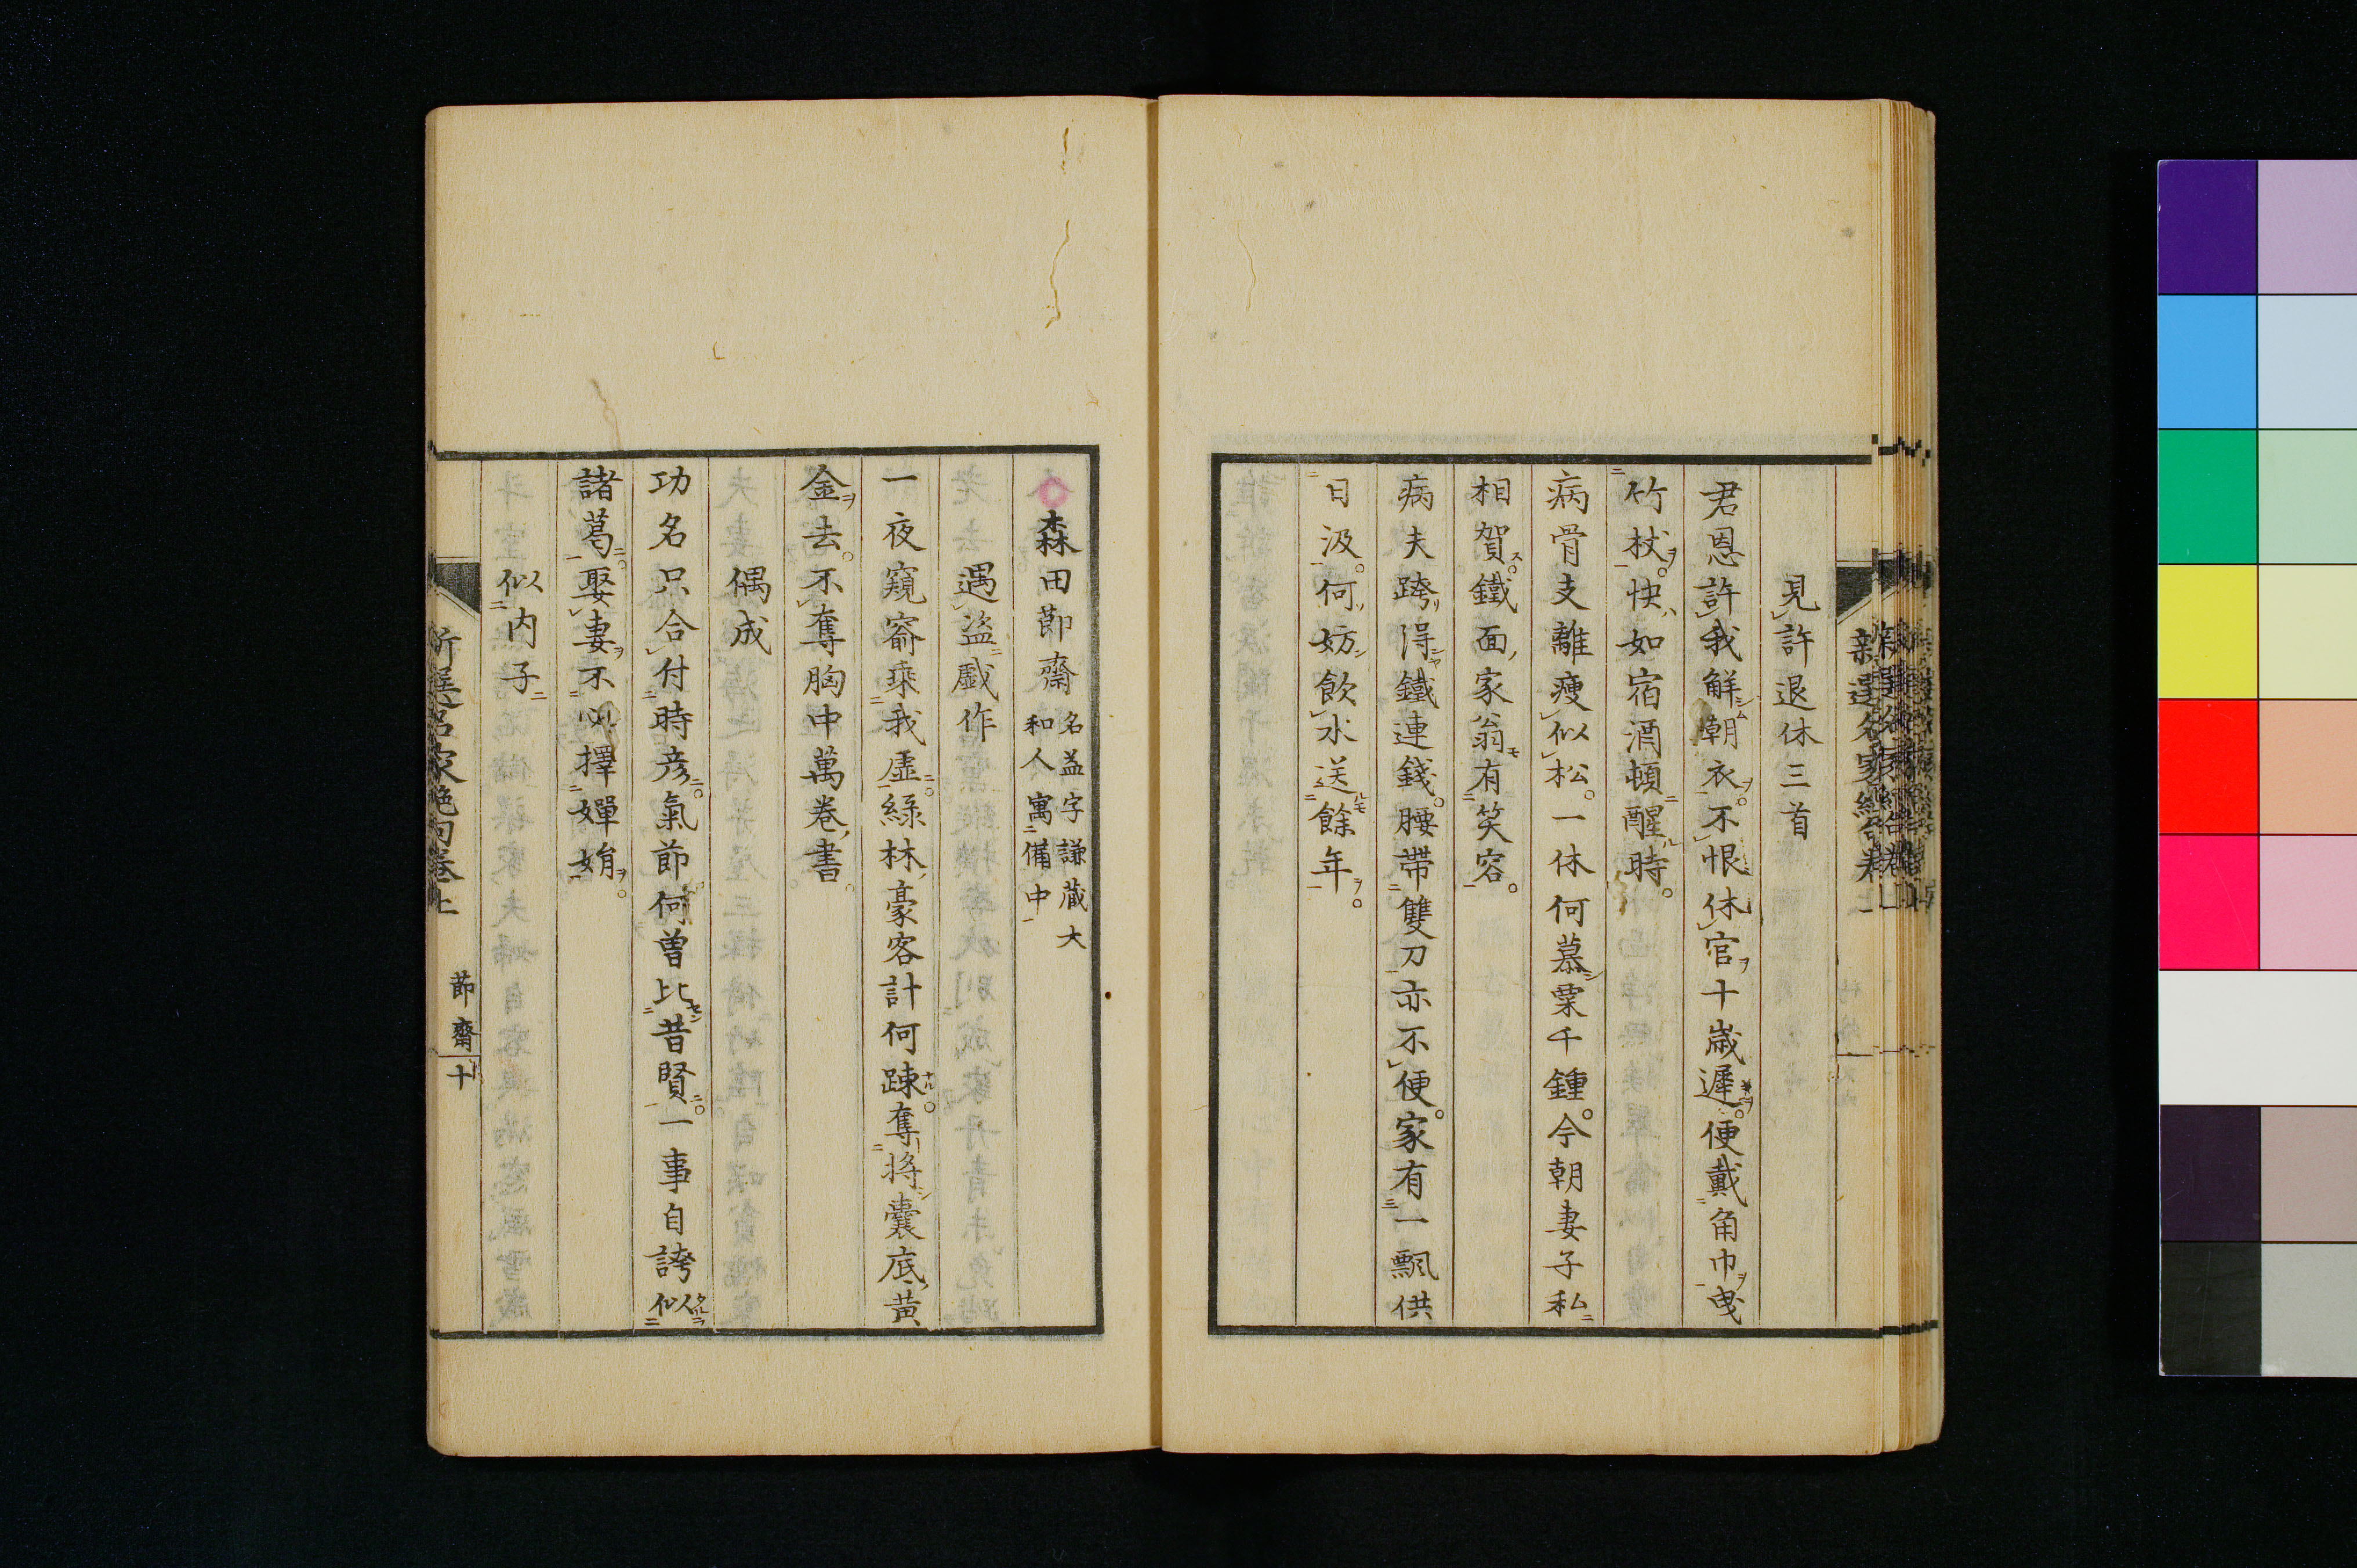 見許退休三首
君恩許我解朝衣不恨休官十歳遲便戴角巾曳
竹杖快如宿酒頓醒時
病骨支離瘦似松一休何慕粟千鍾今朝妻子私
相賀鐵面家翁有笑容
病夫跨得鐵連錢腰帶雙刀亦不便家有一瓢供
日汲何妨飲水送餘年
森田節齋 名益字謙藏大
和人寓備中
遇盜戲作
一夜窺窬乘我虛綠林豪客計何踈奪將囊底黃
金去不奪胸中萬卷書
偶成
功名只合付時彥氣節何曽比昔賢一事自誇似
諸葛娶妻不必擇嬋娟
似内子
新選名家絶句卷上
節齋 十